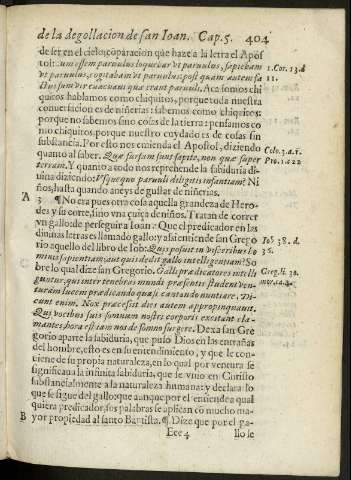 de la degollacion de san Ioan. Cap. 5. 404
de ser en el cielo; cõparacion que haze a la letra el Apos
tol: Cum essem paruulus loquebar vt paruulus, sapiebam
vt paruulus, cogitabam vt paruulus: post quam autem fa
ctus sum vir euacuaui quæ erant paruuli. Aca somos chi
quitos: hablamos como chiquitos, porque toda nuestra
conuersacion es de niñerias: sabemos como chiquitos:
porque no sabemos sino cosas de la tierra: pensamos co
mo chiquitos: porque nuestro cuydado es de cosas sin
substãcia. Por esto nos enciende el Apostol, diziendo
quanto al saber. Quæ sursum sunt sapite, non quæ super
terram. Y quanto a todo nos reprehende la sabiduria di
uina diziendo: Vsquequo paruuli diligitis infantiam? Ni
ños, hasta quando aueys de gustar de niñerias.
1. Cor. 13. d
11.
Colo. 3. a. 1.
Pro. 1. c. 22
A
3 ¶ No era pues otra cosa aquella grandeza de Hero-
des y su corte, sino vna cuiça de niños. Tratan de correr
vn gallo: de perseguir a Ioan: Que el predicador en las
diuinas letras es llamado gallo: y assi entiende san Grego
rio aquello del libro de Iob: Quis posuit in visceribus ho
minis sapientiam; aut quis dedit gallo intelligentiam? So
bre lo qual dize san Gregorio. Galli prædicatores intelli
guntur, qui inter tenebras mundi præsentis student ven-
turam lucem prædicando quasi cantando nuntiare. Di-
cunt enim. Nox præcessit dies autem appropinquauit.
Qui vocibus suis somnum nostri corporis excitant cla-
mantes, hora est iam nos de somno surgere. Dexa san Gre
gorio aparte la sabiduria, que puso Dios en las entrañas
del hombre, esto es en su entendimiento, y que le con-
tiene de su propia naturaleza, en lo qual por ventura se
significaua la infinita sabiduria, que se vnio en Christo
substancialmente a la naturaleza humana: y declara lo
que se sigue del gallo: que aunque por el entiende a qual
quiera predicador, sos palabras se aplican cõ mucho ma-
yor propiedad al santo Baptista. ¶ Dize que por el ga-
Iob 38. d.
36.
Greg. li. 30.
B
Eee 4 llo se